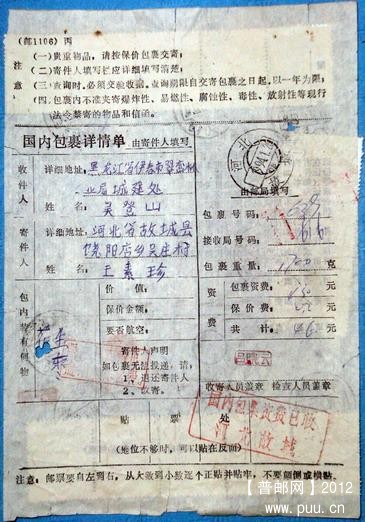 (邮1106) 丙
注意
(一) 贵重物品，请按保价包裹交寄；
(二) 寄件人填写栏应详细填写清楚；
(三) 查询时，必须交验收据。查询期限自交寄包裹之日起，以一年为限；
(四) 包裹内不准夹寄爆炸性、易燃性、腐蚀性、毒性、放射性等现行法令禁寄的物品和信函。
国内包裹详情单 由寄件人填写
河北
由邮局填写
收件人
详细地址：黑龙江省伊春市翠峦林
业局城建处
姓名：吴登山
寄件人
详细地址：河北省故城县
饶阳店乡吴庄村
姓名：王素珍
包裹号码：
接收局号码：
包裹重量： 克
资费
包裹资费： 元
保价费： 元
共计： 元
包内装有何物
花生
价值：
保价金额：
要否航空：
寄件人声明
如包裹无法投递，请：
1、退还寄件人
2、改寄。
收寄人员盖章 检查人员盖章
国内包裹资费已收
河北故城
贴票处
(地位不够时，可以贴在反面)
注意：邮票要自左到右，从大数到小数逐个正贴并贴牢，不要颠倒或横贴。
【普邮网】2012
www.puu.cn